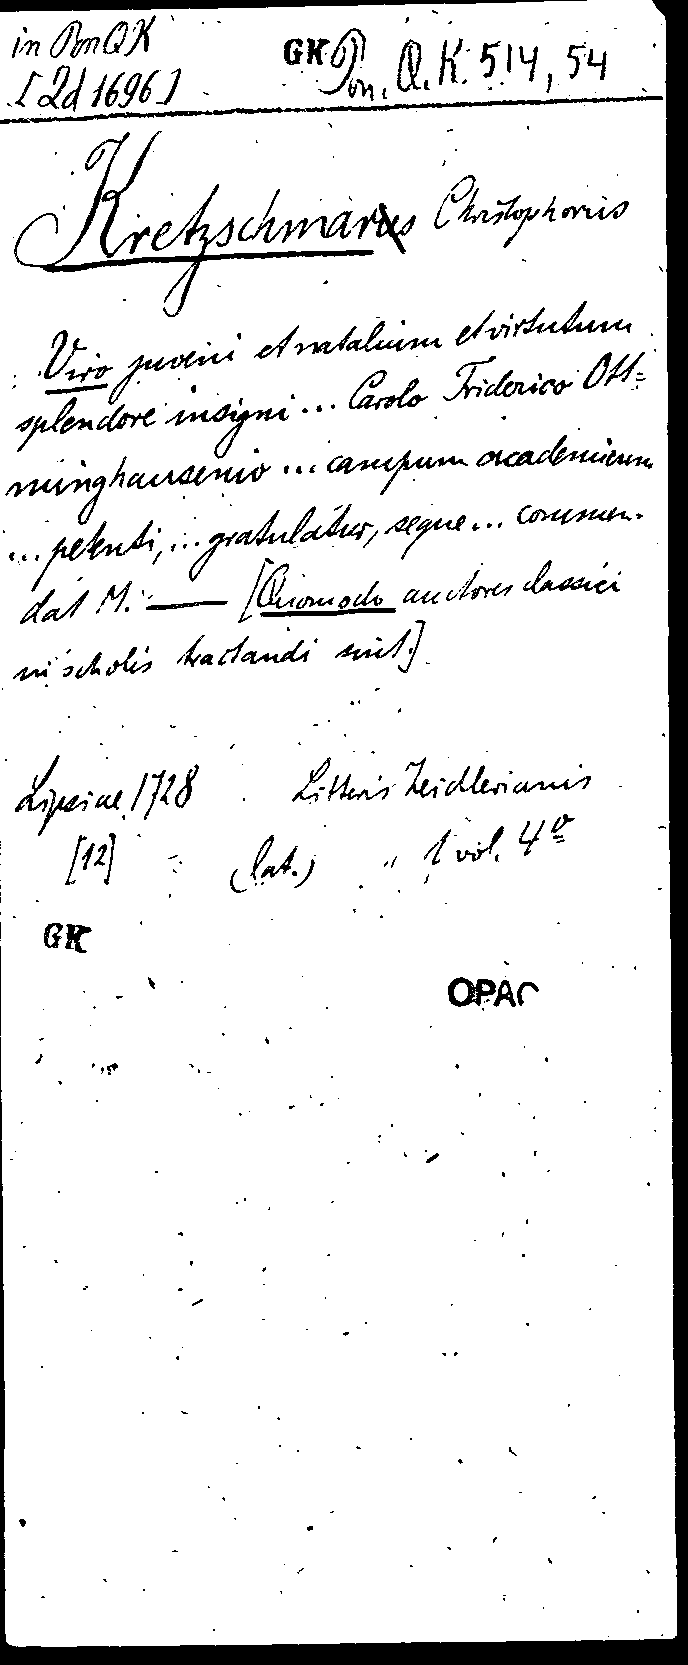 in Pon QK GK Pon. Q. K. 514, 54
[2d 1696]
Kretzschmarus Christophorus
Viro juveni et natalium et virtutum
splendore insigni... Carolo Friderico Ott=
minghausenio ... campum academicum
... petenti, ... gratulatur, seque... commen-
dat M. —— [Quomodo auctores classici
in scholis tractandi sint.]
Lipsiae 1728 Litteris Zeidlerianis
[12] (lat.) 1 vol. 4o
GK
OPAC